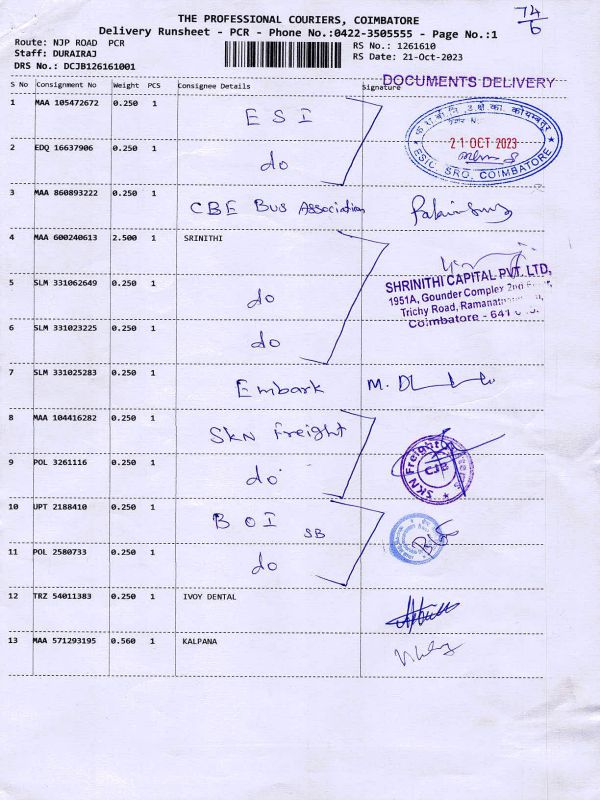 THE PROFESSIONAL COURIERS, COIMBATORE
Delivery Runsheet - PCR - Phone No.:0422-3505555 - Page No.:1
74
6
Route: NJP ROAD PCR
RS No.: 1261610
Staff: DURAIRAJ
RS Date: 21-Oct-2023
DRS No.: DCJB126161001
DOCUMENTS DELIVERY
S No Consignment No Weight PCS Consignee Details Signature
1 MAA 105472672 0.250 1 E S I
21 OCT 2023
ESIC, SRO, COIMBATORE
2 EDQ 16637906 0.250 1 do
3 MAA 860893222 0.250 1 CBE Bus Association
4 MAA 600240613 2.500 1 SRINITHI
SHRINITHI CAPITAL PVT. LTD,
1951A, Gounder Complex 2nd
Trichy Road,
Coimbatore - 641
5 SLM 331062649 0.250 1 do
6 SLM 331023225 0.250 1 do
7 SLM 331025283 0.250 1 Embark
8 MAA 104416282 0.250 1 SKN Freight
SKN Freight
CJB
9 POL 3261116 0.250 1 do
10 UPT 2188410 0.250 1 B O I SB
11 POL 2580733 0.250 1 do
12 TRZ 54011383 0.250 1 IVOY DENTAL
13 MAA 571293195 0.560 1 KALPANA